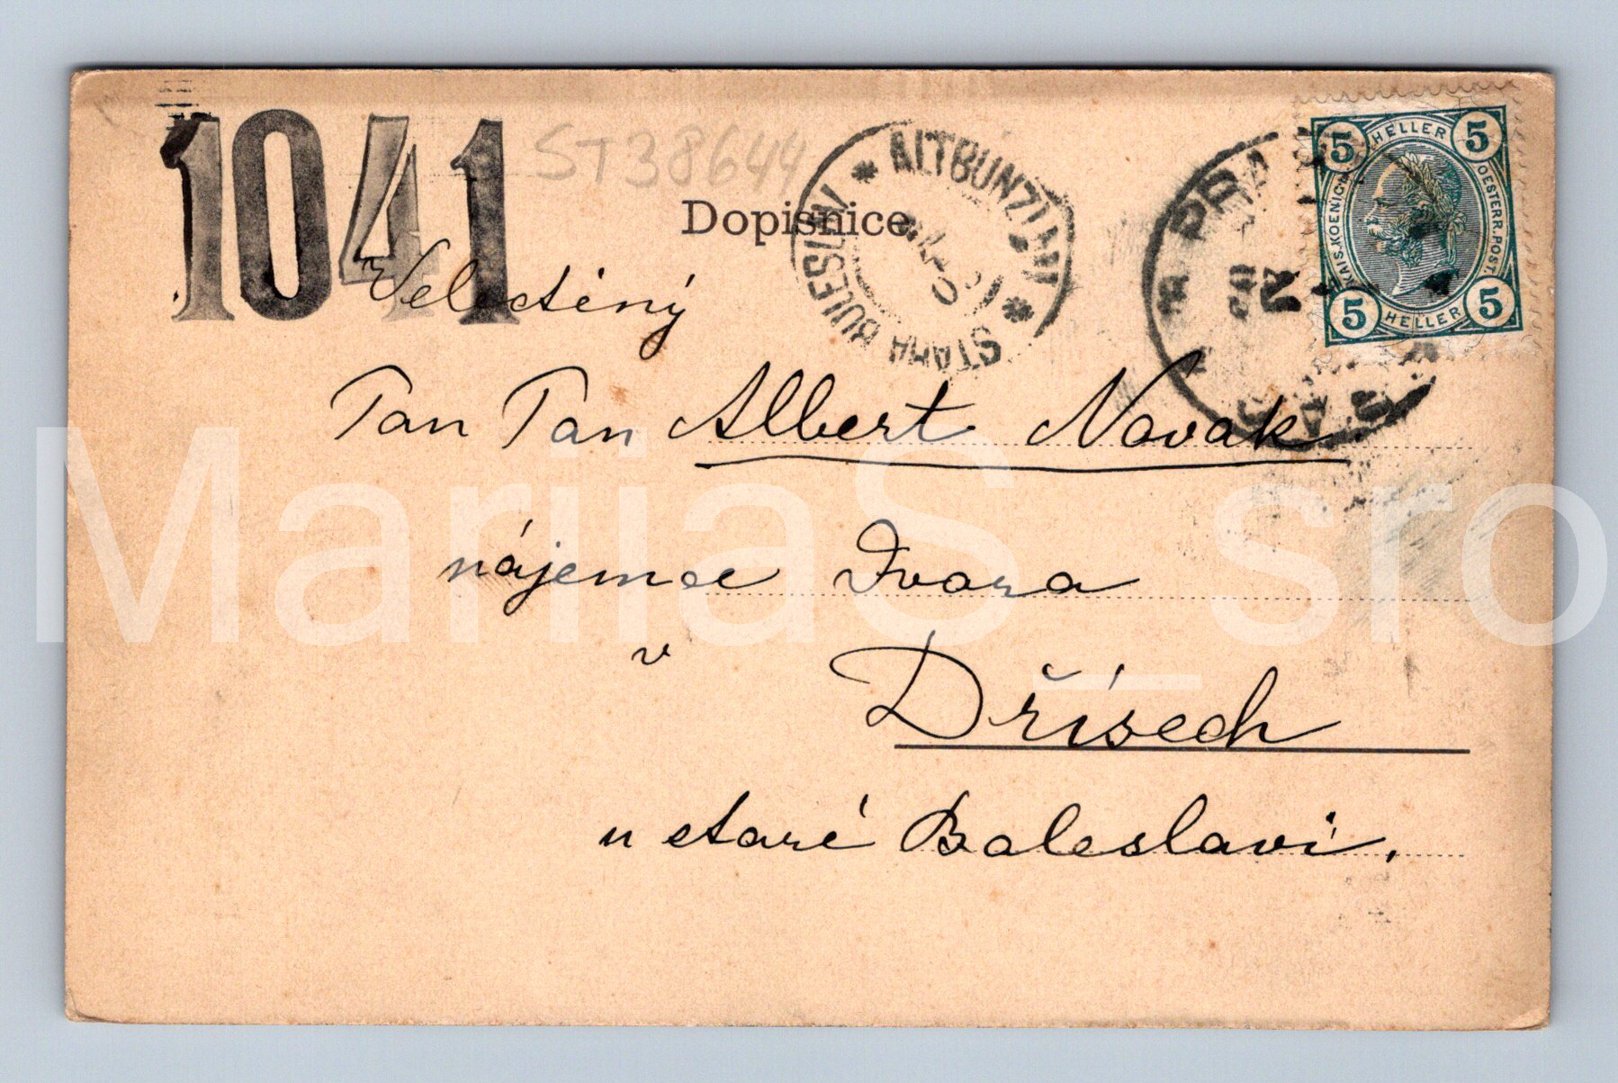 1041
ST38644
Dopisnice
ALTBUNZLAU
STARÁ BOLESLAV
PRAG
PRAHA
5 HELLER 5
KAIS. KOENIGL. OESTERR. POST.
5 HELLER 5
Velectěný
Pan Pan Albert Novak
nájemce Dvora
v
Dřísech
u staré Boleslavi.
MariiaS_sro